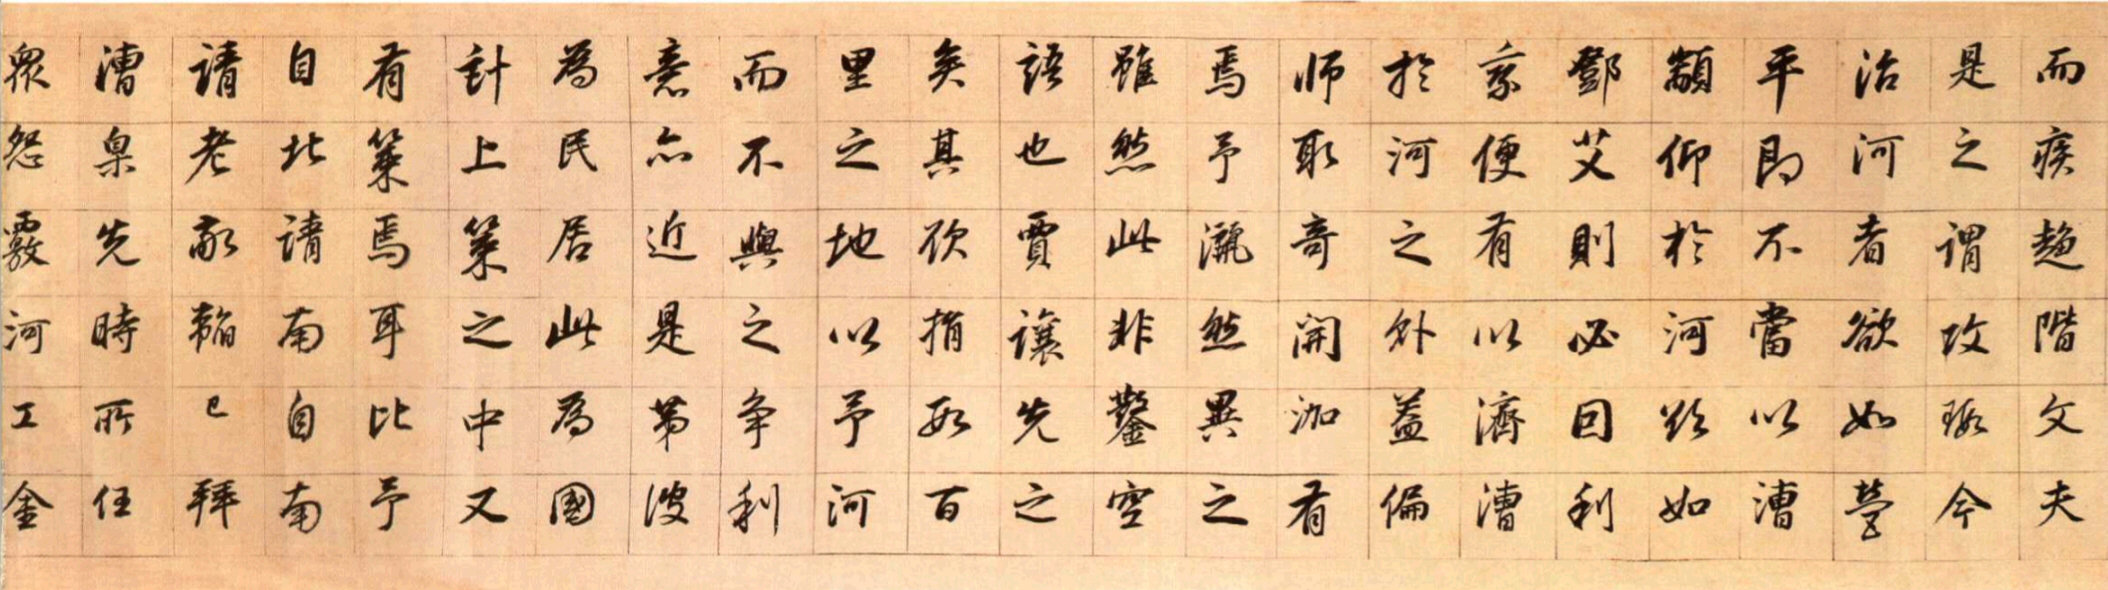 而疾趨階文夫
是之謂攻瑕今
治河者欲如營
平即不當以漕
顓仰於河必如
鄧艾則必回利
害便有以濟漕
於河之外蓋偏
師取奇開泇有
焉予灑然異之
雖然此非鑿空
語也賈讓先之
矣其欲捐數百
里之地以予河
而不與之爭利
意亦近是第彼
為民居此為國
計上策之中又
有策焉耳比予
自北請南自南
請老敬韜已拜
漕臬先時所任
眾怨覈河工金